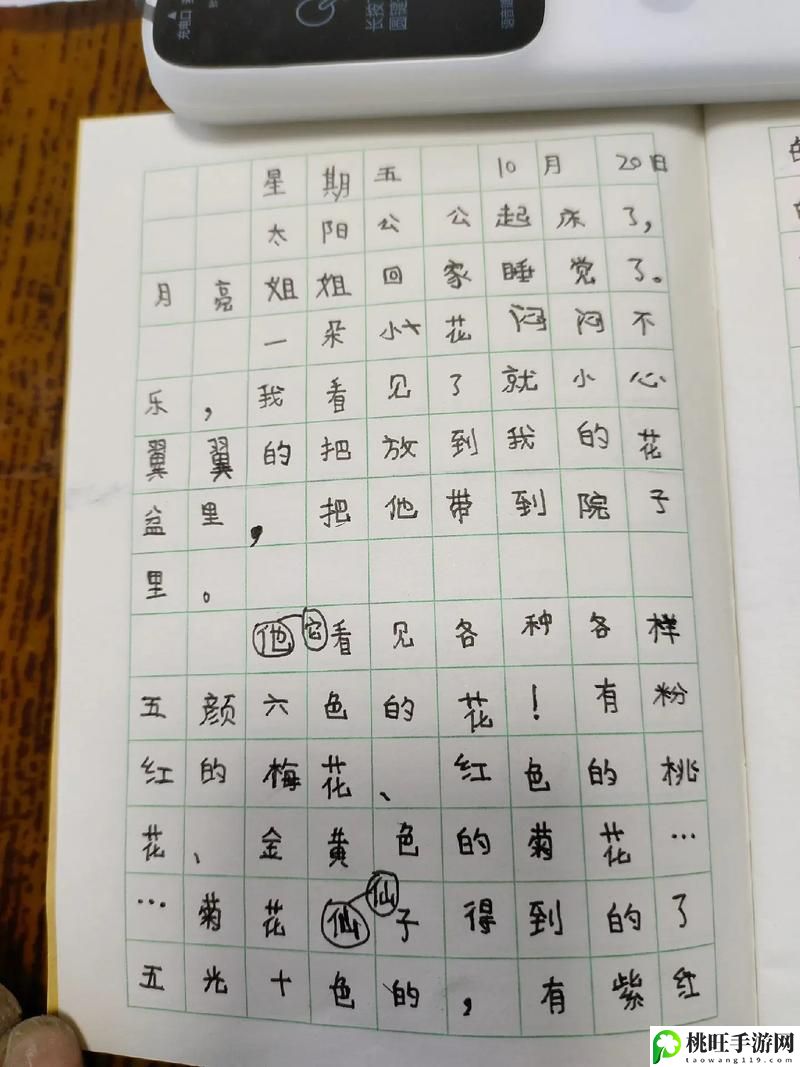 充电口
长按
圆提
语音播
星期五 10月20日
太阳公公起床了,
月亮姐姐回家睡觉了。
一朵小花闷闷不
乐,我看见了就小心
翼翼的把放到我的花
盆里,把他带到院子
里。
他它看见各种各样
五颜六色的花!有粉
红的梅花、红色的桃
花、金黄色的菊花…
…菊花仙仙子得到的了
五光十色的,有紫红
桃旺手游网
taowang119.com